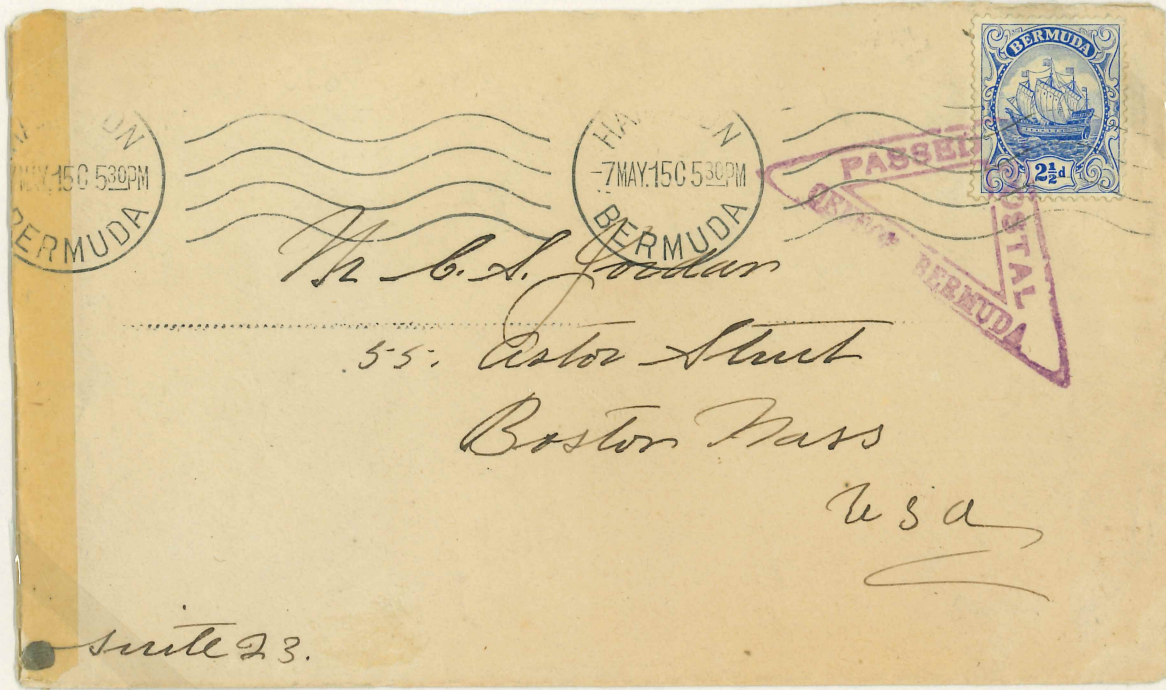 BERMUDA
2½d
HAMILTON
7 MAY.15C 530PM
BERMUDA
HAMILTON
-7MAY.15C 530PM
BERMUDA
PASSED
POSTAL
CENSOR BERMUDA
Mr C. S. Jordan
55. Astor Street
Boston Mass
U S A
Suite 23.